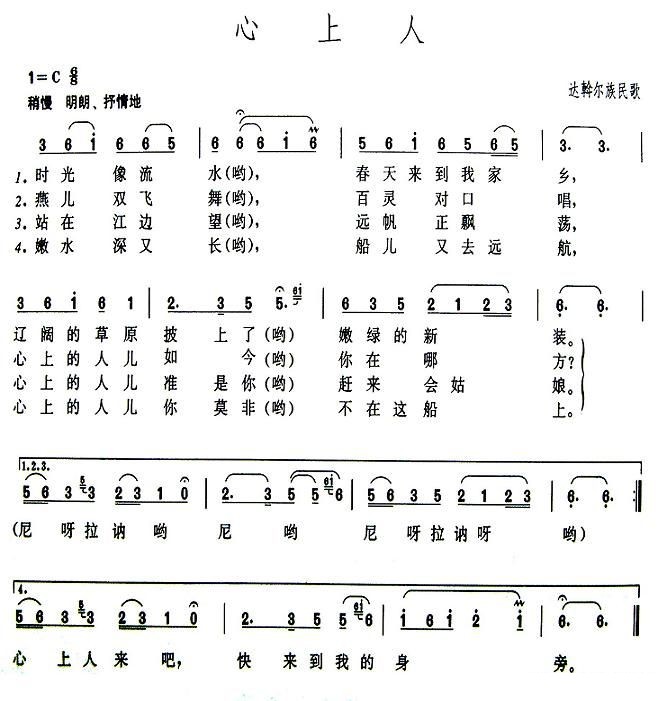 心上人
1=C 6/8
稍慢 明朗、抒情地
达斡尔族民歌
3 6 i 6 6 5 | 6 6 6 i 6 | 5 6 i 6 5 6 5 | 3. 3. |
1.时光 像流 水(哟), 春天来到我家 乡,
2.燕儿 双飞 舞(哟), 百灵 对口 唱,
3.站在 江边 望(哟), 远帆 正飘 荡,
4.嫩水 深又 长(哟), 船儿 又去远 航,
3 6 i 6 1 | 2. 3 5 5. | 6 3 5 2 1 2 3 | 6. 6. |
辽阔的草原披 上了(哟) 嫩绿的新 装。
心上的人儿如 今(哟) 你在 哪 方?
心上的人儿准 是你(哟) 赶来 会姑 娘。
心上的人儿你 莫非(哟) 不在这船 上。
1.2.3.
5 6 3 5 3 2 3 1 0 | 2. 3 5 5 6i 6 | 5 6 3 5 2 1 2 3 | 6. 6. :|
(尼 呀拉讷哟 尼 哟 尼 呀拉讷呀 哟)
4.
5 6 3 5 3 2 3 1 0 | 2. 3 5 5 6i 6 | i 6 i 2 i | 6. 6. |
心 上人来 吧, 快 来到我的身 旁。